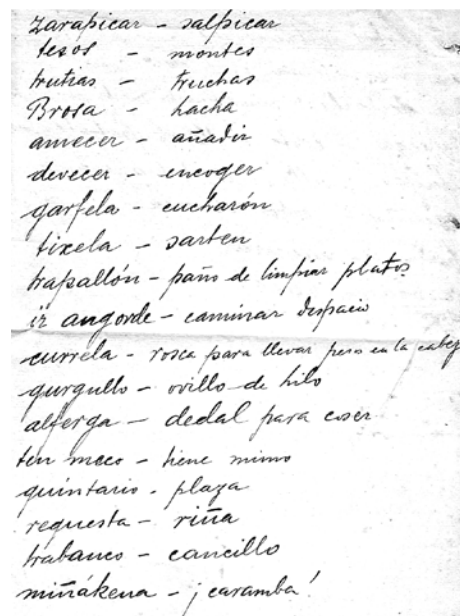 zarapicar - salpicar
tesos - montes
trutias - truchas
Brosa - hacha
amecer - añadir
devecer - encoger
garfela - cucharón
tixela - sarten
trapallón - paño de limpiar platos
ir angorde - caminar despacio
currela - rosca para llevar peso en la cabeza
gurgullo - ovillo de hilo
alferga - dedal para coser
ten meco - tiene mimo
quintario - plaza
requesta - riña
trabanco - cancillo
miñákena - ¡caramba!